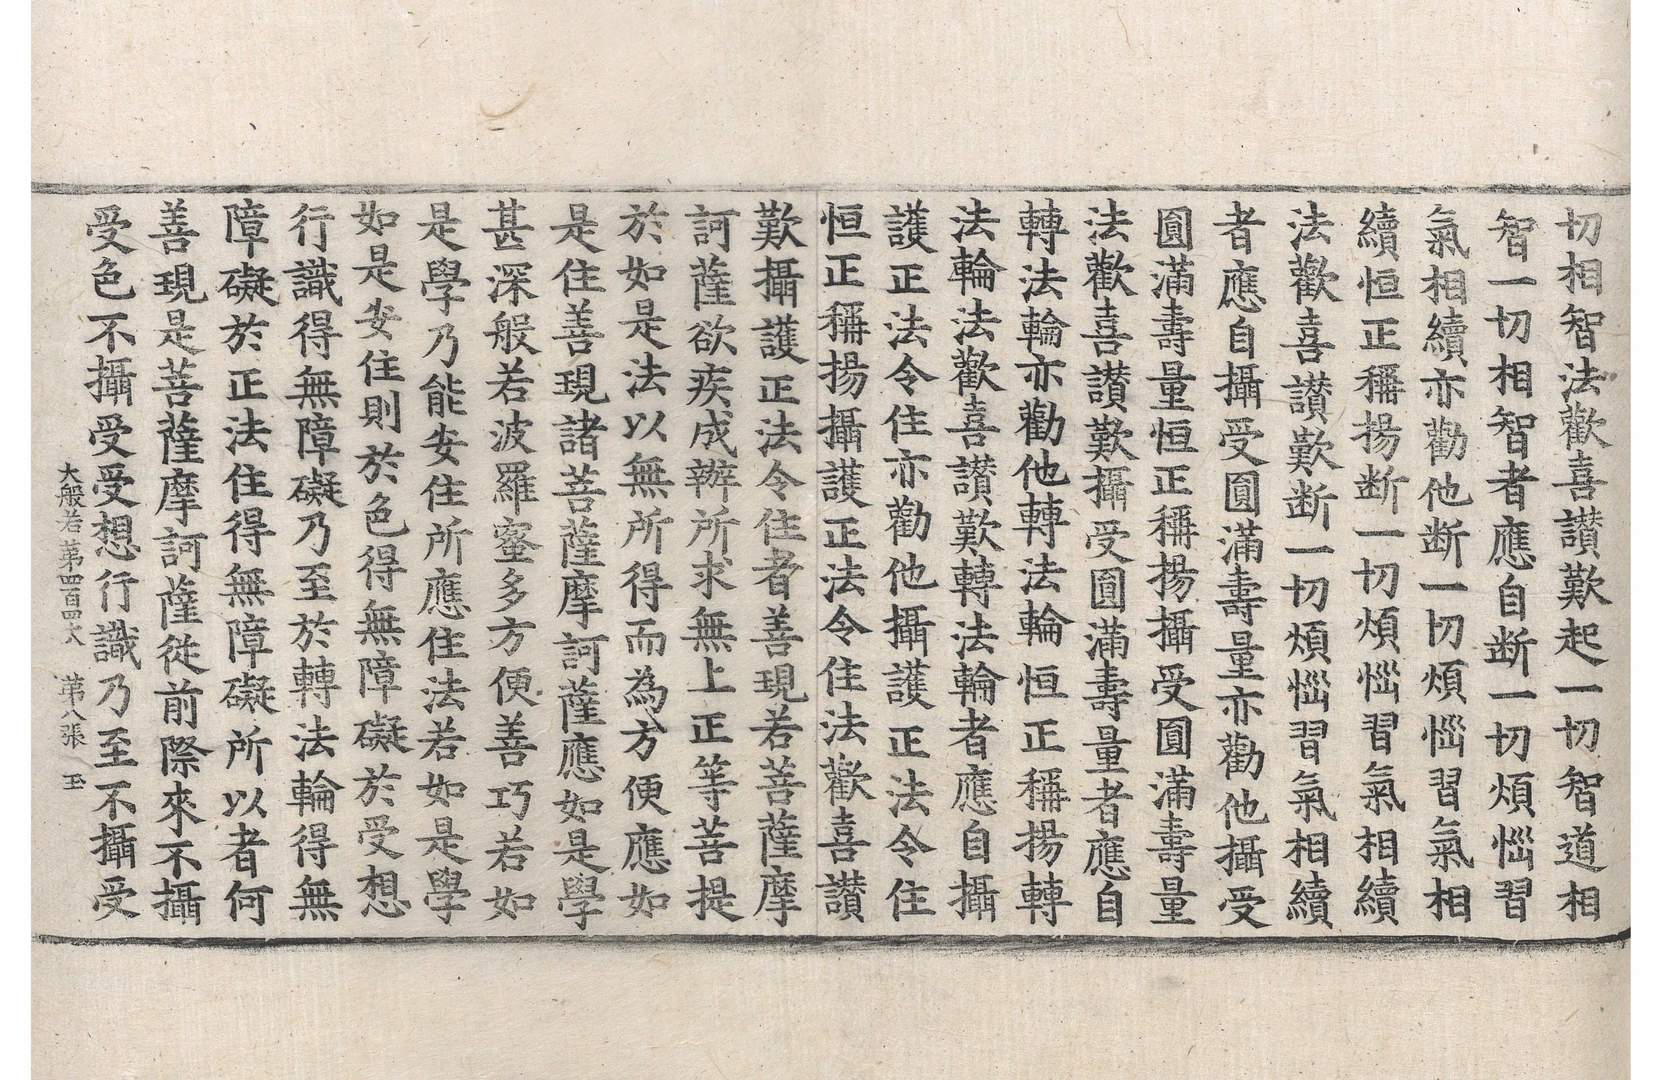 切相智法歡喜讃歎起一切智道相
智一切相智者應自断一切煩惱習
氣相續亦勸他断一切煩惱習氣相
續恒正稱揚断一切煩惱習氣相續
法歡喜讃歎断一切煩惱習氣相續
者應自攝受圓滿壽量亦勸他攝受
圓滿壽量恒正稱揚攝受圓滿壽量
法歡喜讃歎攝受圓滿壽量者應自
轉法輪亦勸他轉法輪恒正稱揚轉
法輪法歡喜讃歎轉法輪者應自攝
護正法令住亦勸他攝護正法令住
恒正稱揚攝護正法令住法歡喜讃
歎攝護正法令住者善現若菩薩摩
訶薩欲疾成辦所求無上正等菩提
於如是法以無所得而為方便應如
是住善現諸菩薩摩訶薩應如是學
甚深般若波羅蜜多方便善巧若如
是學乃能安住所應住法若如是學
如是安住則於色得無障礙於受想
行識得無障礙乃至於轉法輪得無
障礙於正法住得無障礙所以者何
善現是菩薩摩訶薩從前際來不攝
受色不攝受受想行識乃至不攝受
大般若第四百四六 第八張 玉